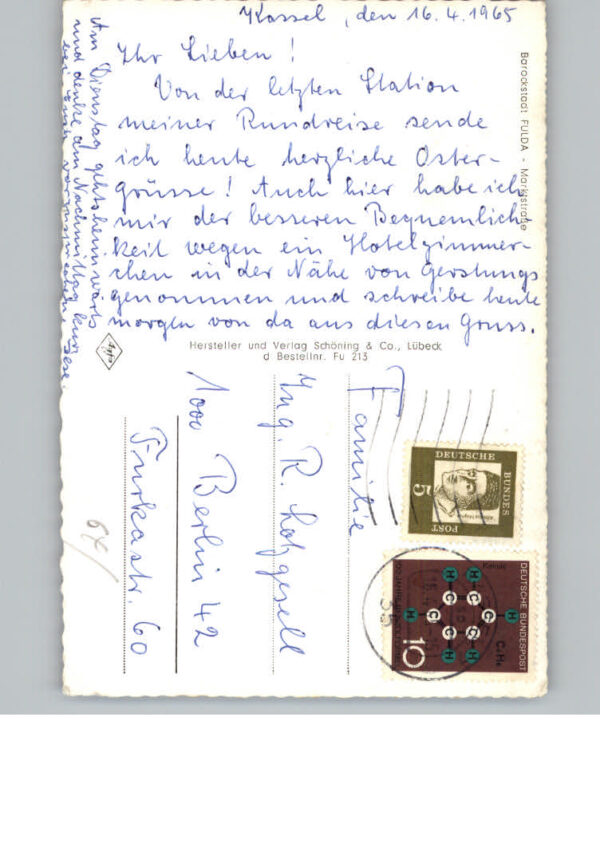 Kassel, den 16.4.1965
Ihr Lieben!
Von der letzten Station
meiner Rundreise sende
ich heute herzliche Oster-
grüsse! Auch hier habe ich
mir der besseren Bequemlich
keit wegen ein Hotelzimmer-
chen in der Nähe von Gerstungs
genommen und schreibe heute
morgen von da aus diesen Gruss.
Am Dienstag gehts heimwärts
und denke am Nachmittag kurz
bei Euch vorzusprechen.
Barockstadt FULDA - Marktstraße
Agfa
Hersteller und Verlag Schöning & Co., Lübeck
d Bestellnr. Fu 213
Familie
Ing. R. Lotzgesell
1000 Berlin 42
Furkastr. 60
DEUTSCHE
BUNDES
POST
5
DEUTSCHE BUNDESPOST
Kekulé
C6H6
10
H
H
H
H
H
H
C
C
C
C
C
C
35